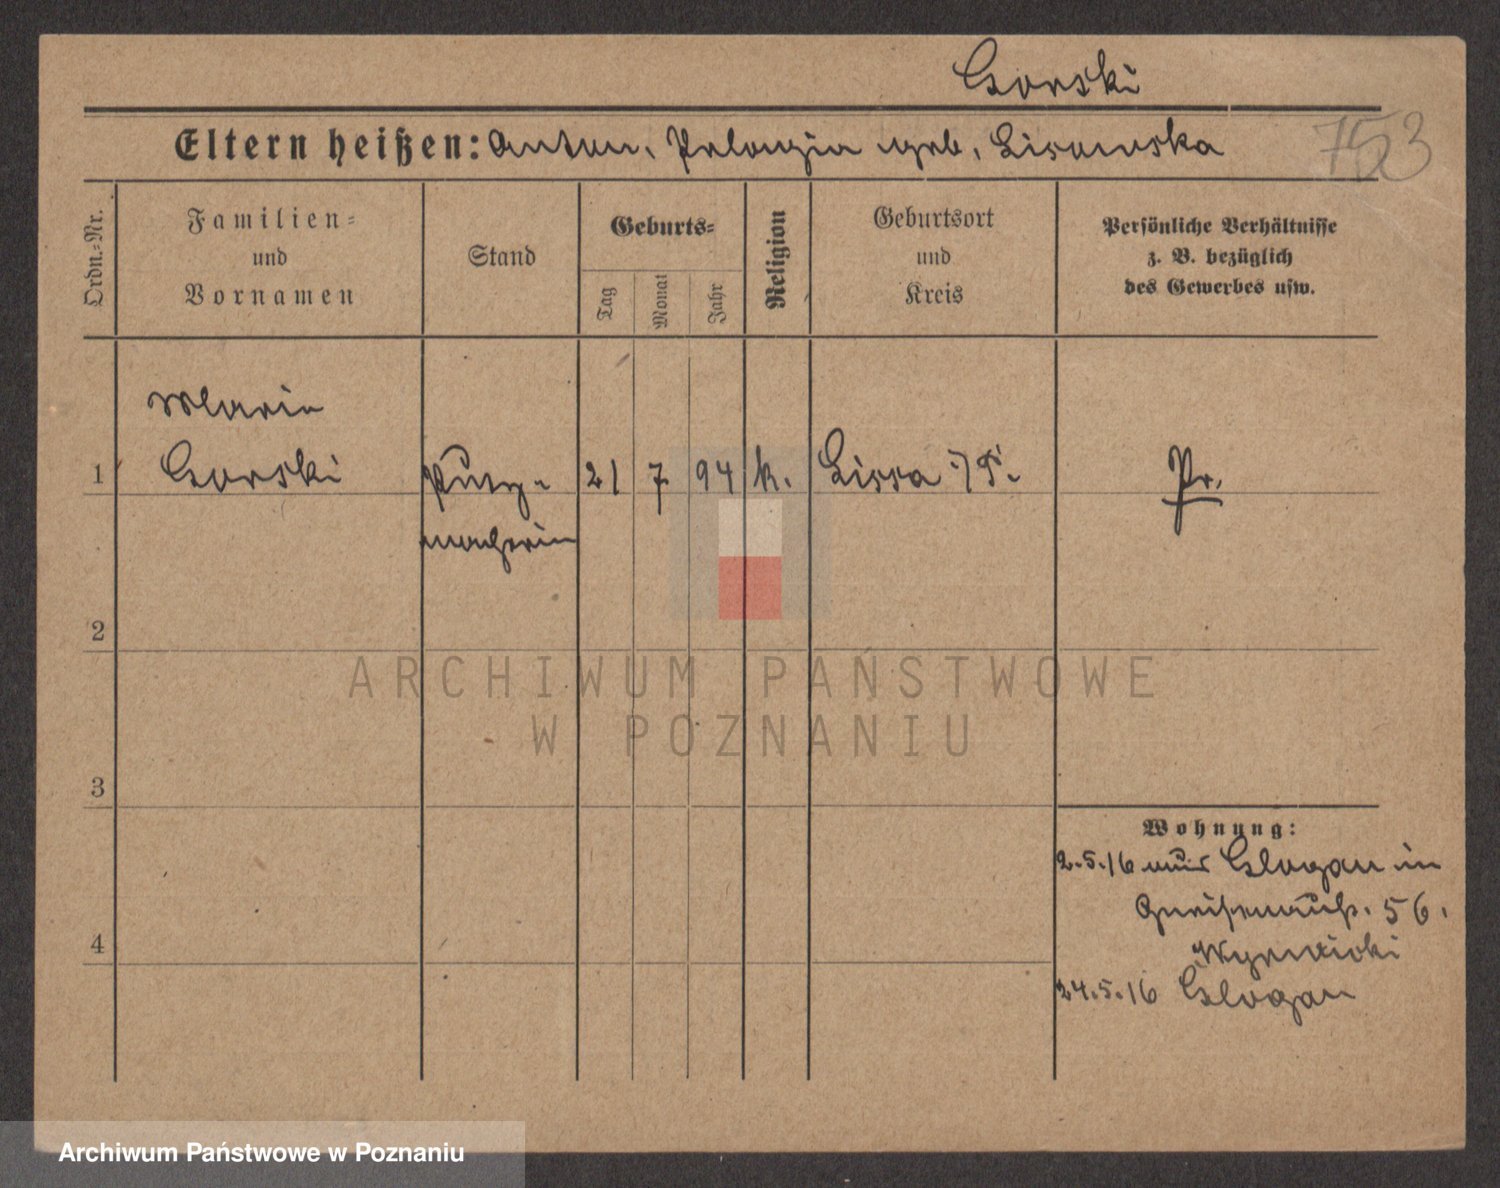 Gorski
Eltern heißen: Anton, Pelagia geb. Lisowska
753
Ordn.=Nr.
Familien=
und
Vornamen
Stand
Geburts=
Tag
Monat
Jahr
Religion
Geburtsort
und
Kreis
Persönliche Verhältnisse
z. B. bezüglich
des Gewerbes usw.
Maria
1 Gorski Putz- 21 7 94 k. Lissa i/P. Pr.
macherin
2
ARCHIWUM PAŃSTWOWE
W POZNANIU
3
Wohnung:
2.5.16 aus Glogau in
Gneisenaustr. 56.
24.5.16 Glogau
4
Archiwum Państwowe w Poznaniu